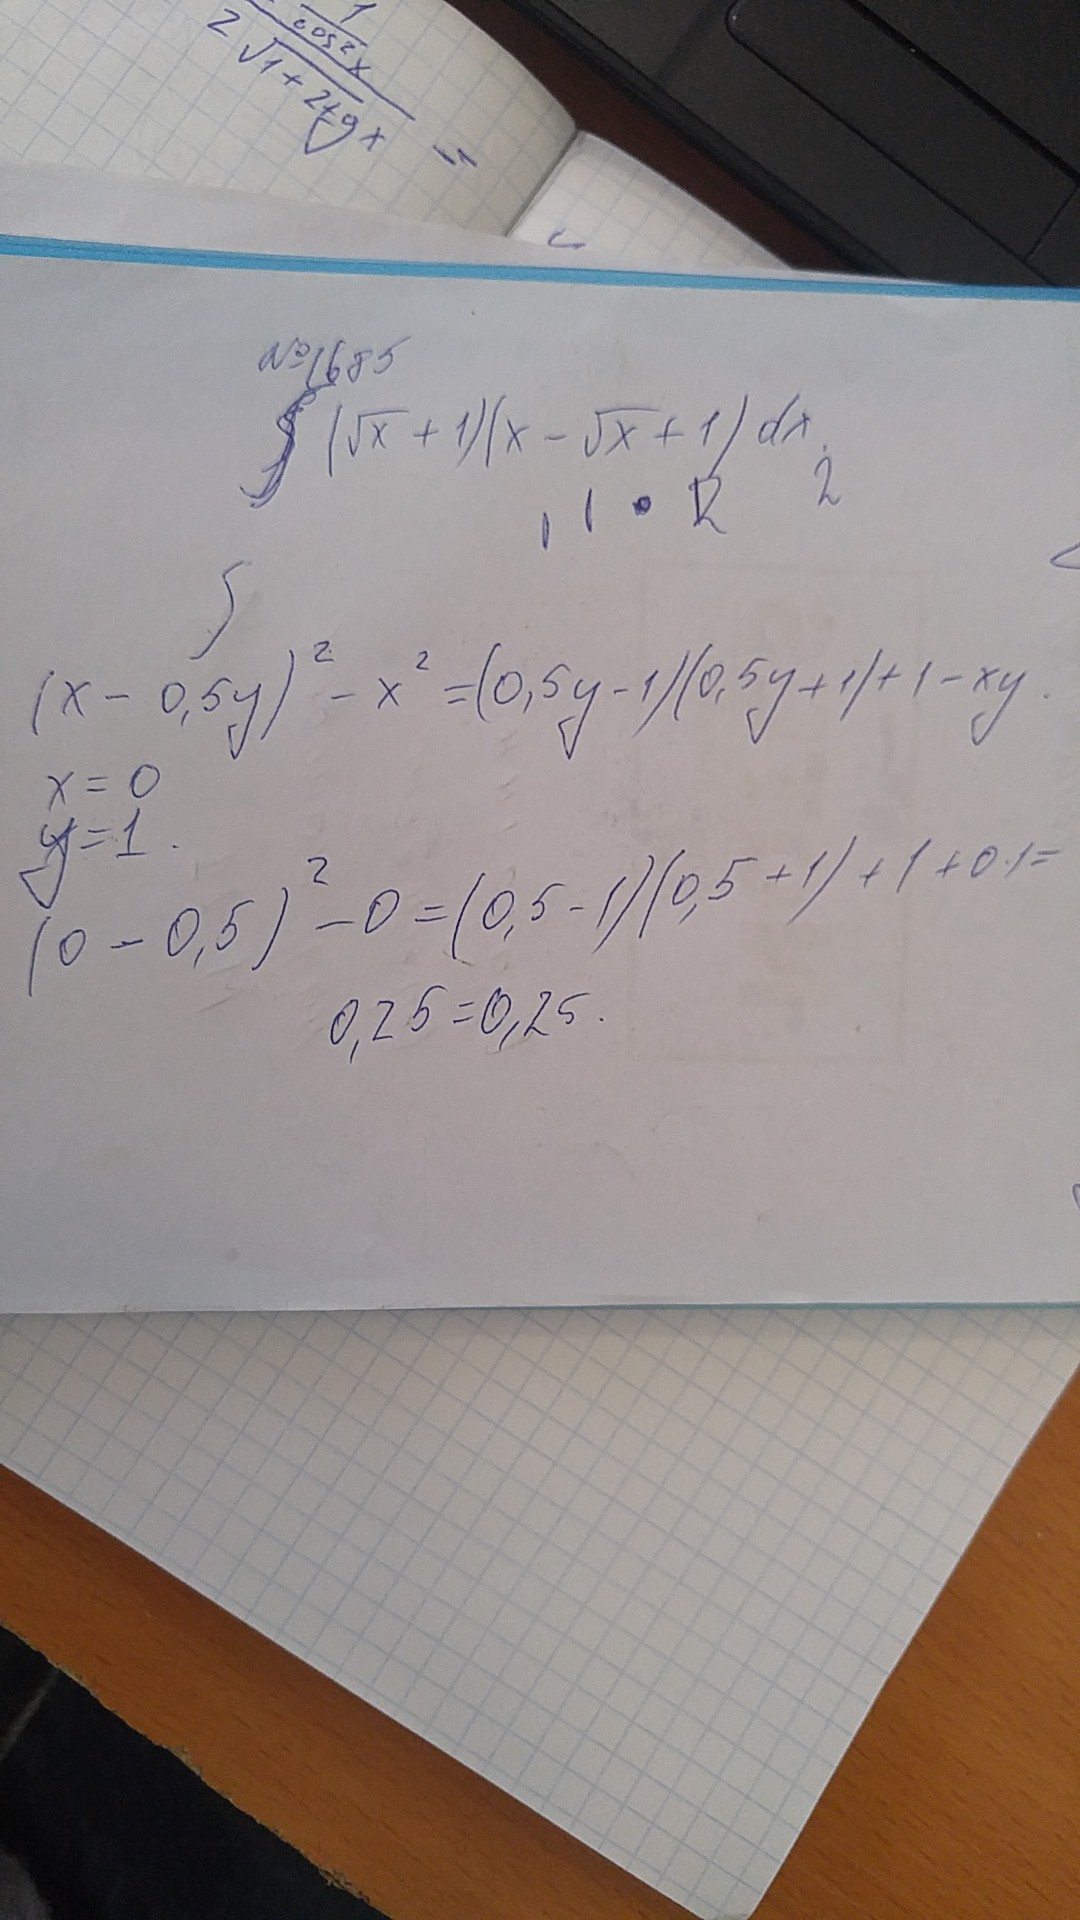 1
cos²x
2√1+2tgx =
№1685
∫(√x+1)(x-√x+1)dx.
, 1 • 2
∫
(x-0,5y)²-x²=(0,5y-1)(0,5y+1)+1-xy.
x=0
y=1.
(0-0,5)²-0=(0,5-1)(0,5+1)+1+0·1=
0,25=0,25.